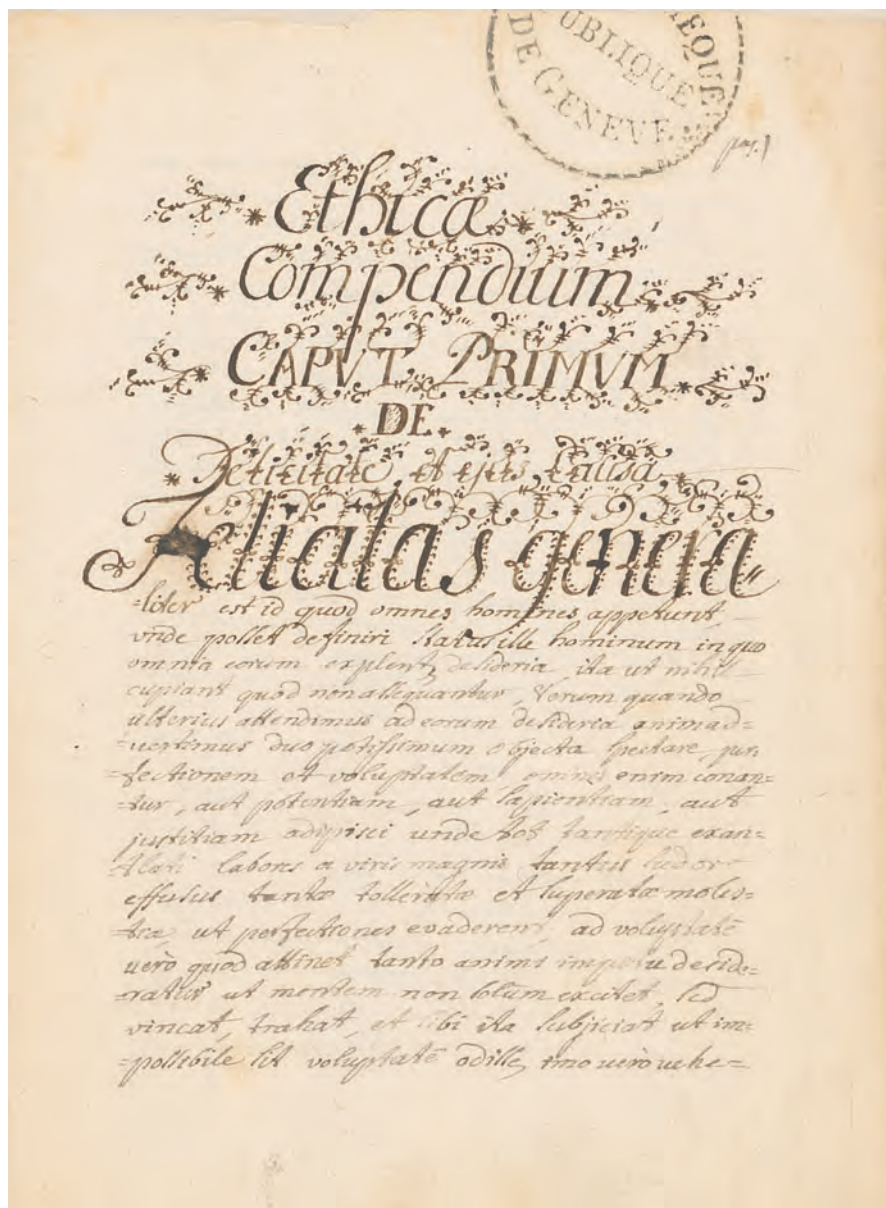 EQUE
UBLIQUE
DE GENEVE
pag. 1
Ethicæ
Compendium
CAPVT PRIMVM
DE
Felicitate et ejus causa
Felicitas genera
=liter est id quod omnes homines appetunt
vnde pollet definiri status ille hominum in quo
omnia eorum explent desideria ita ut nihil
cupiant quod non assequantur, Verum quando
ulterius attendimus ad eorum desideria animad=
=uertimus duo potissimum objecta spectare, per
=fectionem et voluptatem, omnes enim conan=
=tur, aut potentiam, aut sapientiam, aut
justitiam adipisci unde tot tantique exan=
=tlati labores a viris magnis tantus sudor
effusus tantæ tolleratæ et superatæ moles=
=tiæ, ut perfectiores evaderent, ad voluptatē
uerò quod attinet tanto animi impetu deside=
=ratur ut mentem non solum excitet, sed
vincat, trahat, et sibi ita subjiciat ut im=
=possibile sit voluptatē odisse, imo uerò uehe=